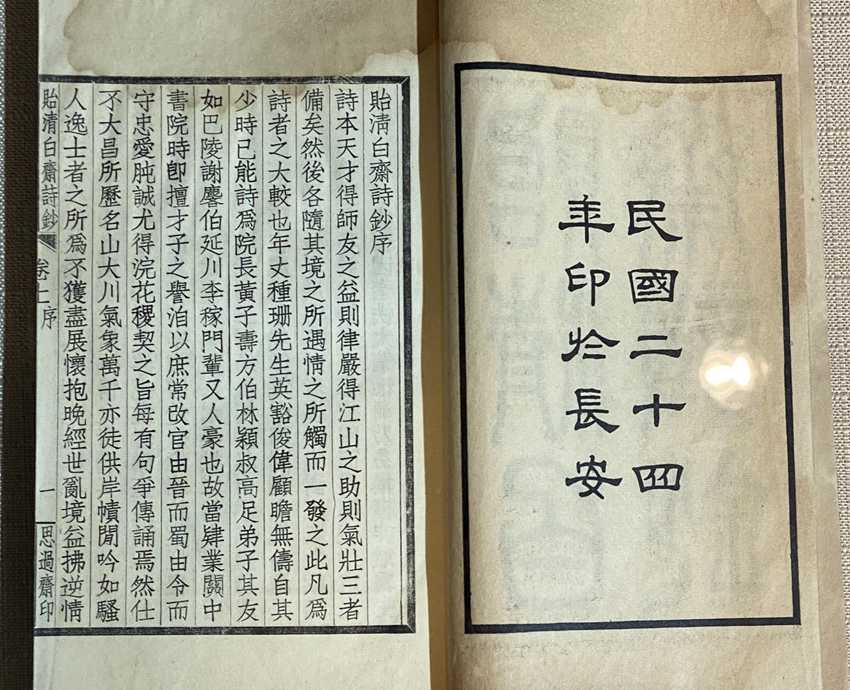 民國二十四
年印於長安
貽清白齋詩鈔序
詩本天才得師友之益則律嚴得江山之助則氣壯三者
備矣然後各隨其境之所遇情之所觸而一發之此凡為
詩者之大較也年丈種珊先生英豁俊偉顧瞻無儔自其
少時已能詩為院長黃子壽方伯林穎叔高足弟子其友
如巴陵謝麐伯延川李稼門輩又人豪也故當肄業關中
書院時卽擅才子之譽洎以庶常改官由晉而蜀由令而
守忠愛肫誠尤得浣花稷契之旨每有句爭傳誦焉然仕
不大昌所歷名山大川氣象萬千亦徒供岸幘閒吟如騷
人逸士者之所為不獲盡展懷抱晚經世亂境益拂逆情
貽清白齋詩鈔
卷上 序
一
思過齋印